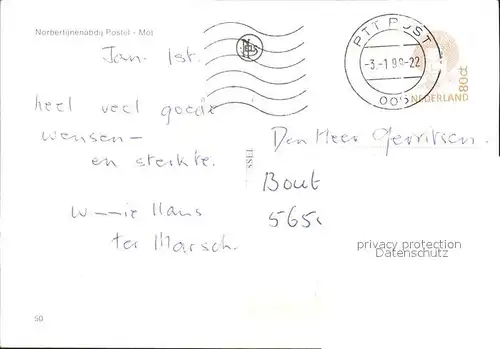 Norbertijnenabdij Postel - Mol
Jan. 1st.
heel veel goede
wensen -
en sterkte.
Hans
ter Marsch.
PTT POST
-3.-1.9 -22
NEDERLAND
80ct
Den Heer Gerritsen.
Bout
565
privacy protection
Datenschutz
50